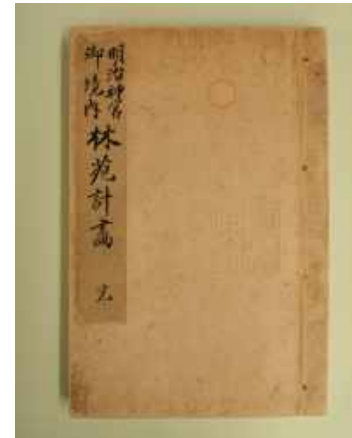 明治神宮
御境内
林苑計畫 完